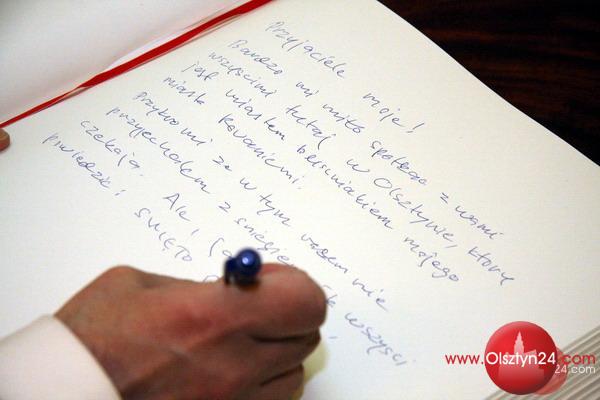 Przyjaciele moje!
Bardzo mi miło spotkać z wami
wszyścimi tutaj w Olsztynie, który
jest miastem bliźniakiem mojego
miasta Rovaniemi.
Przykro mi że w tym razem nie
przyjechałem z śniegiem
czekają. Ale, wszyści
powiedzić: ŚWIĘTO
www.Olsztyn24.com
24.com